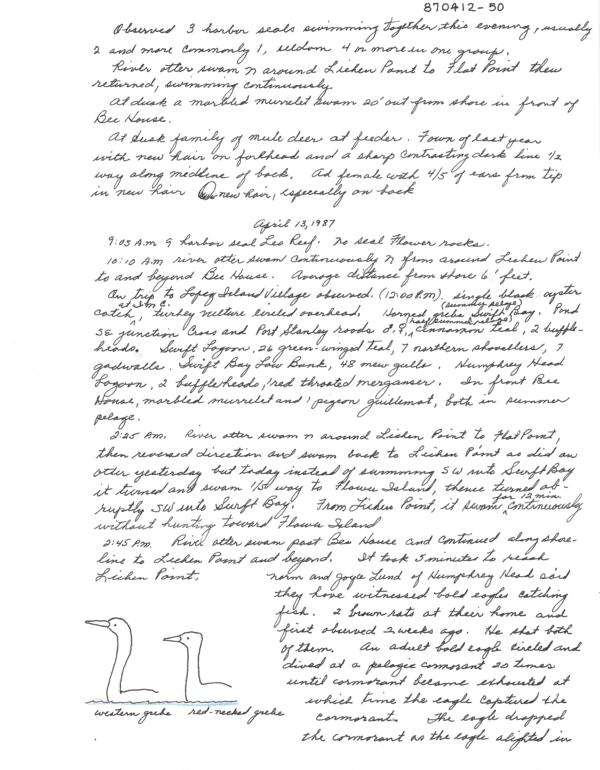 870412-50
Observed 3 harbor seals swimming together this evening, usually
2 and more commonly 1, seldom 4 or more in one group.
River otter swam N around Lichen Point to Flat Point then
returned, swimming continuously.
At dusk a marbled murrelet swam 20' out from shore in front of
Bee House.
At dusk family of mule deer at feeder. Fawn of last year
with new hair on forehead and a sharp contrasting dark line 1/2
way along midline of back. Ad female with 4/5 of ears from tip
in new hair new hair, especially on back
April 13, 1987
9:05 A.M. 9 harbor seal Leo Reef. No seal Flower rocks.
10:10 A.M. river otter swam continuously N from around Lichen Point
to and beyond Bee House. Average distance from shore 6' feet.
On trip to Lopez Island Village observed. (15:00 P.M.) single black oyster
catch, turkey vulture circled overhead. Horned grebe (summer pelage) Swift Bay. Pond
SE junction Cross and Port Stanley roads ♂, ♀, cinnamon teal, 2 buffle-
heads. Swift Lagoon, 26 green-winged teal, 7 northern shovellers, 7
gadwalls. Swift Bay Low Bank, 48 mew gulls. Humphrey Head
Lagoon, 2 buffleheads, 1 red throated merganser. In front Bee
House, marbled murrelet and 1 pigeon guillemot, both in summer
pelage.
2:25 A.M. River otter swam N around Lichen Point to Flat Point,
then reversed direction and swam back to Lichen Point as did an
otter yesterday but today instead of swimming SW into Swift Bay
it turned and swam 1/5 way to Flower Island, thence turned ab-
ruptly SW into Swift Bay. From Lichen Point, it swam for 12 min. continuously
without hunting toward Flower Island
2:45 P.M. River otter swam past Bee House and continued along shore-
line to Lichen Point and beyond. It took 5 minutes to reach
Lichen Point.
Norm and Joyce Lund of Humphrey Head said
they have witnessed bald eagles catching
fish. 2 brown rats at their home and
first observed 2 weeks ago. He shot both
of them. An adult bald eagle circled and
dived at a pelagic cormorant 20 times
until cormorant became exhausted at
which time the eagle captured the
cormorant. The eagle dropped
the cormorant as the eagle alighted in
western grebe red-necked grebe